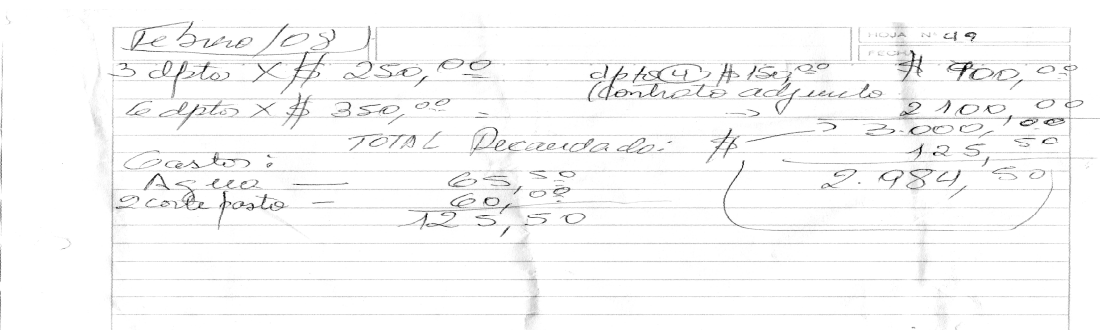 Febrero/08
HOJA Nº 49
FECHA
3 dptos X $ 250,00 dpto 4 $ 150,00 $ 900,00
(Contrato adjunto
6 dptos X $ 350,00 = → 2 100,00
TOTAL Recaudado: $ → 3.000,00
125,50
Gastos:
Agua — 65,50 2.984,50
2 corte pasto – 60,00
125,50